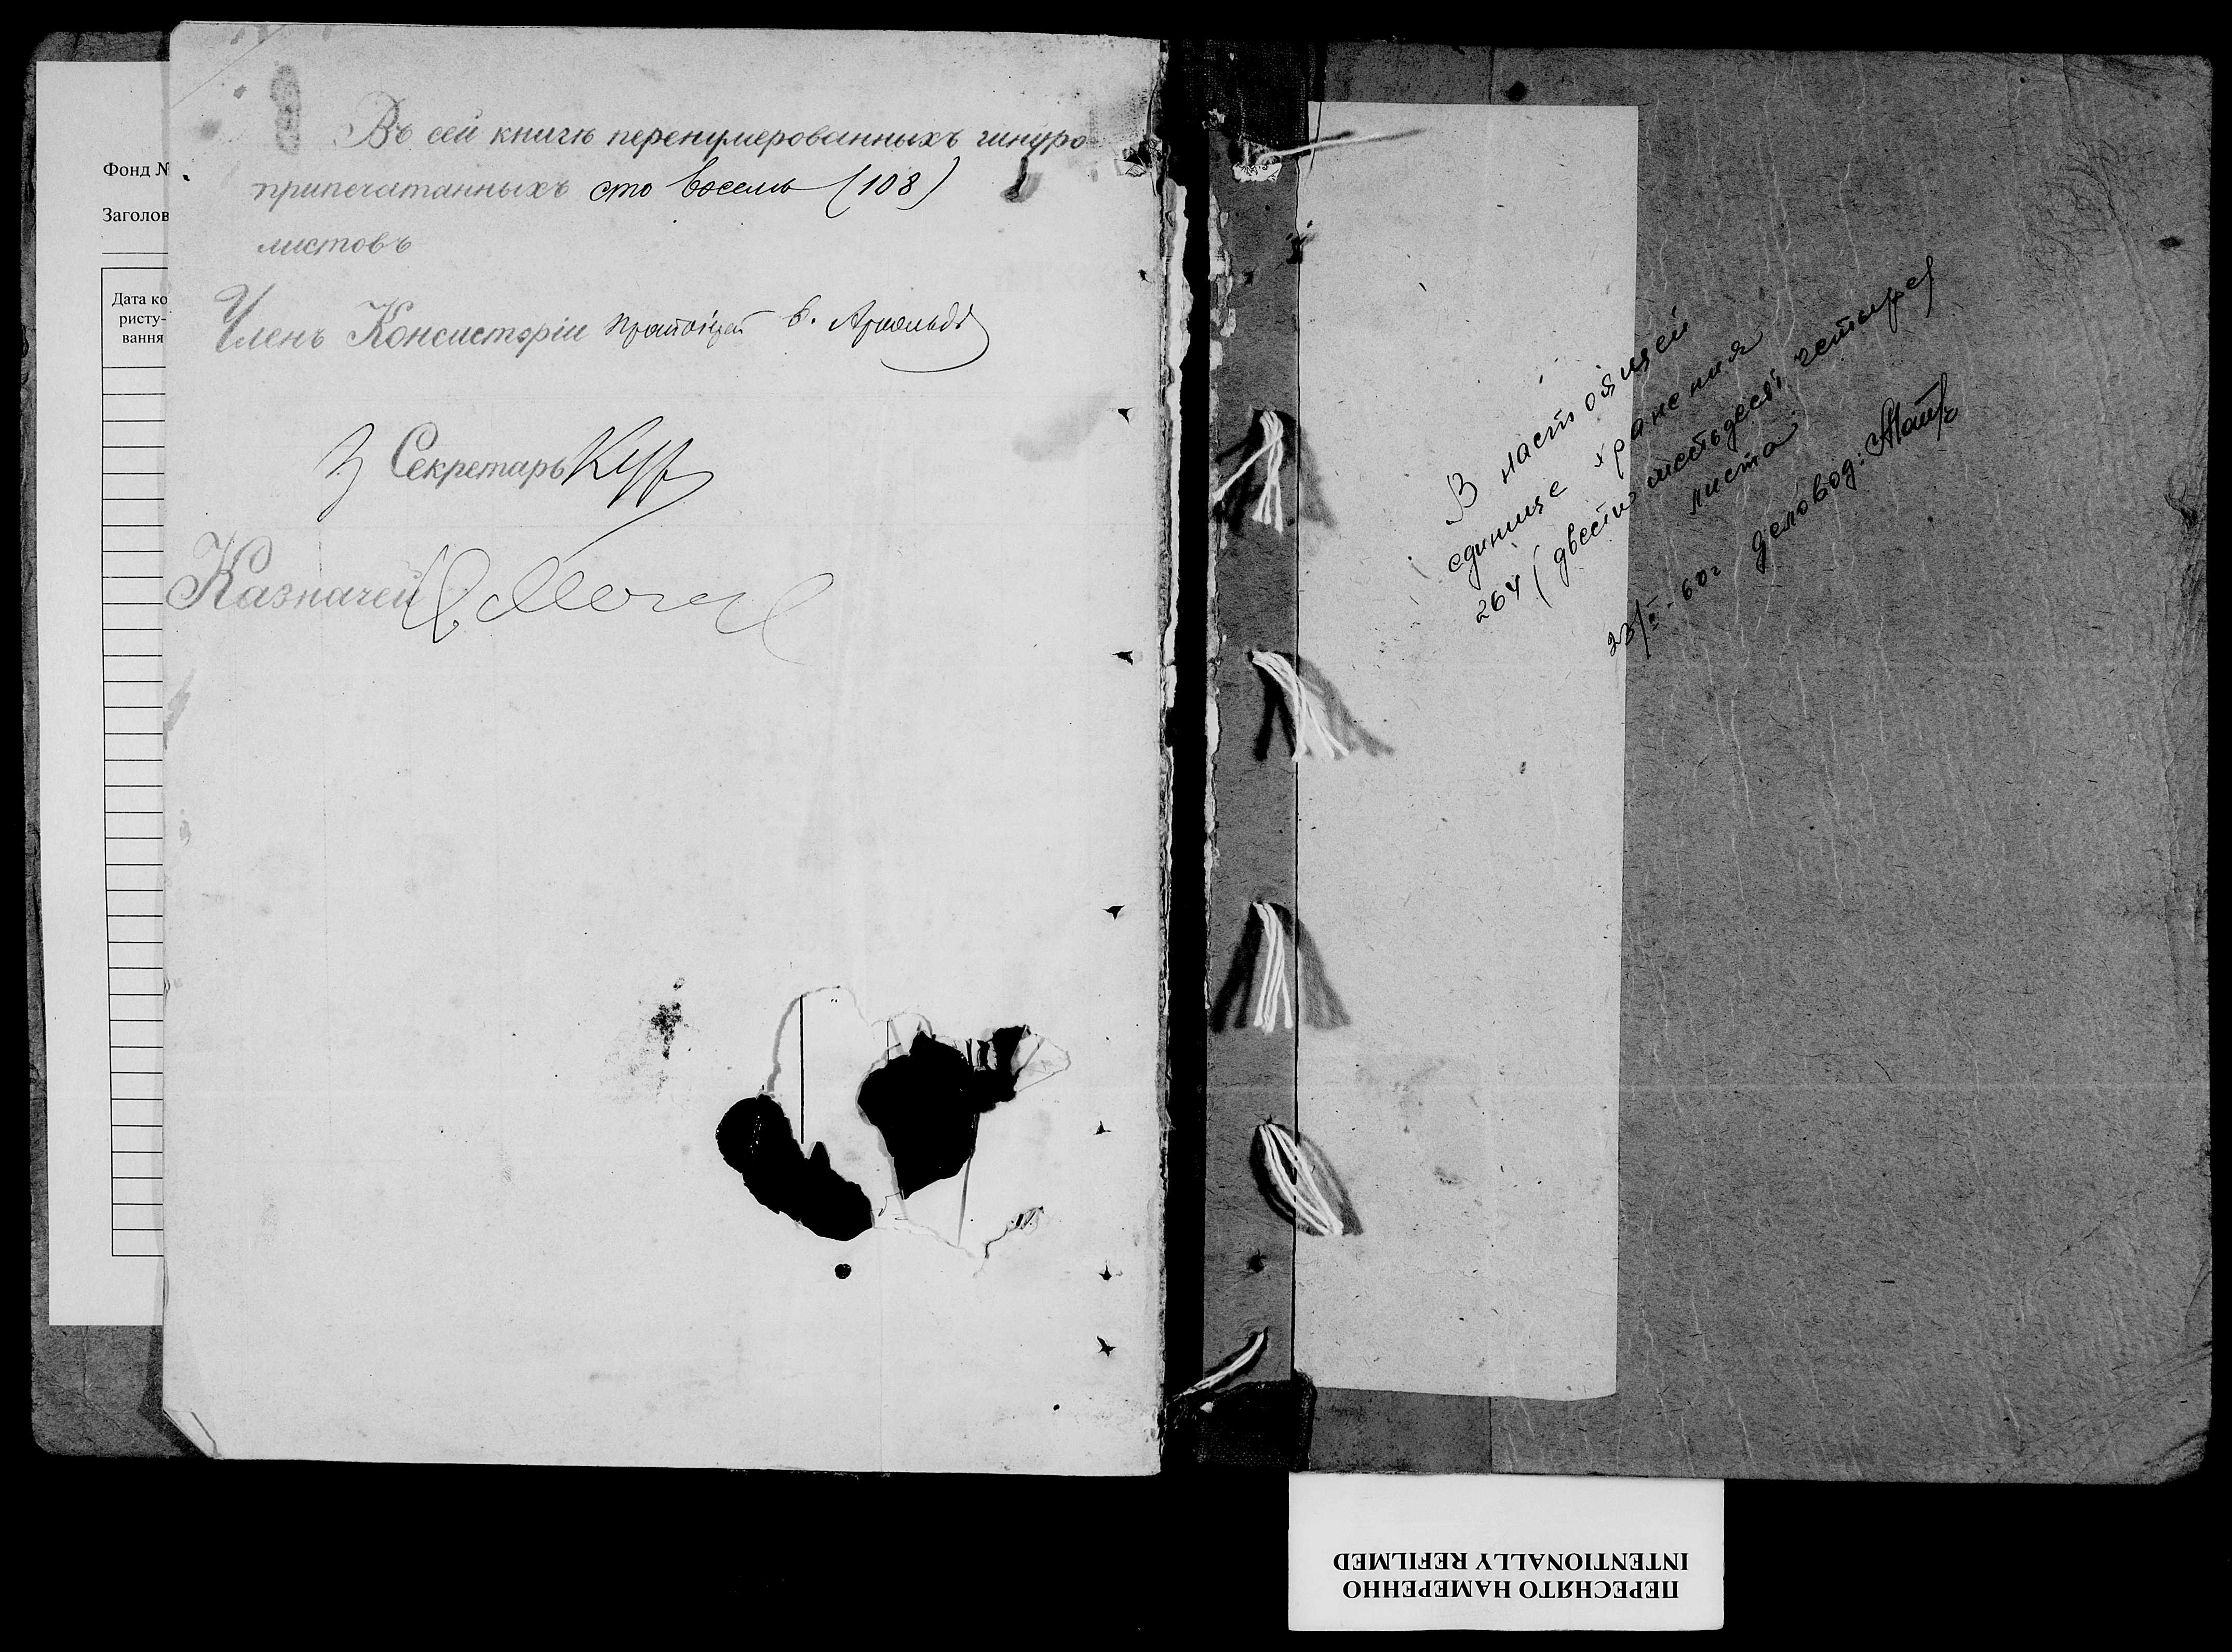 Фонд №
Заголов
Дата ко
ристу-
вання
Въ сей книгѣ перенумерованныхъ шнуро
припечатанныхъ сто восемь (108)
листовъ
Членъ Консисторіи Протоіерей
Секретарь
Казначей
В настоящей
единице хранения
264 (двести шестьдесят четыре)
листа
23/ 60г Деловод:
ПЕРЕСНЯТО НАМЕРЕННО
INTENTIONALLY REFILMED